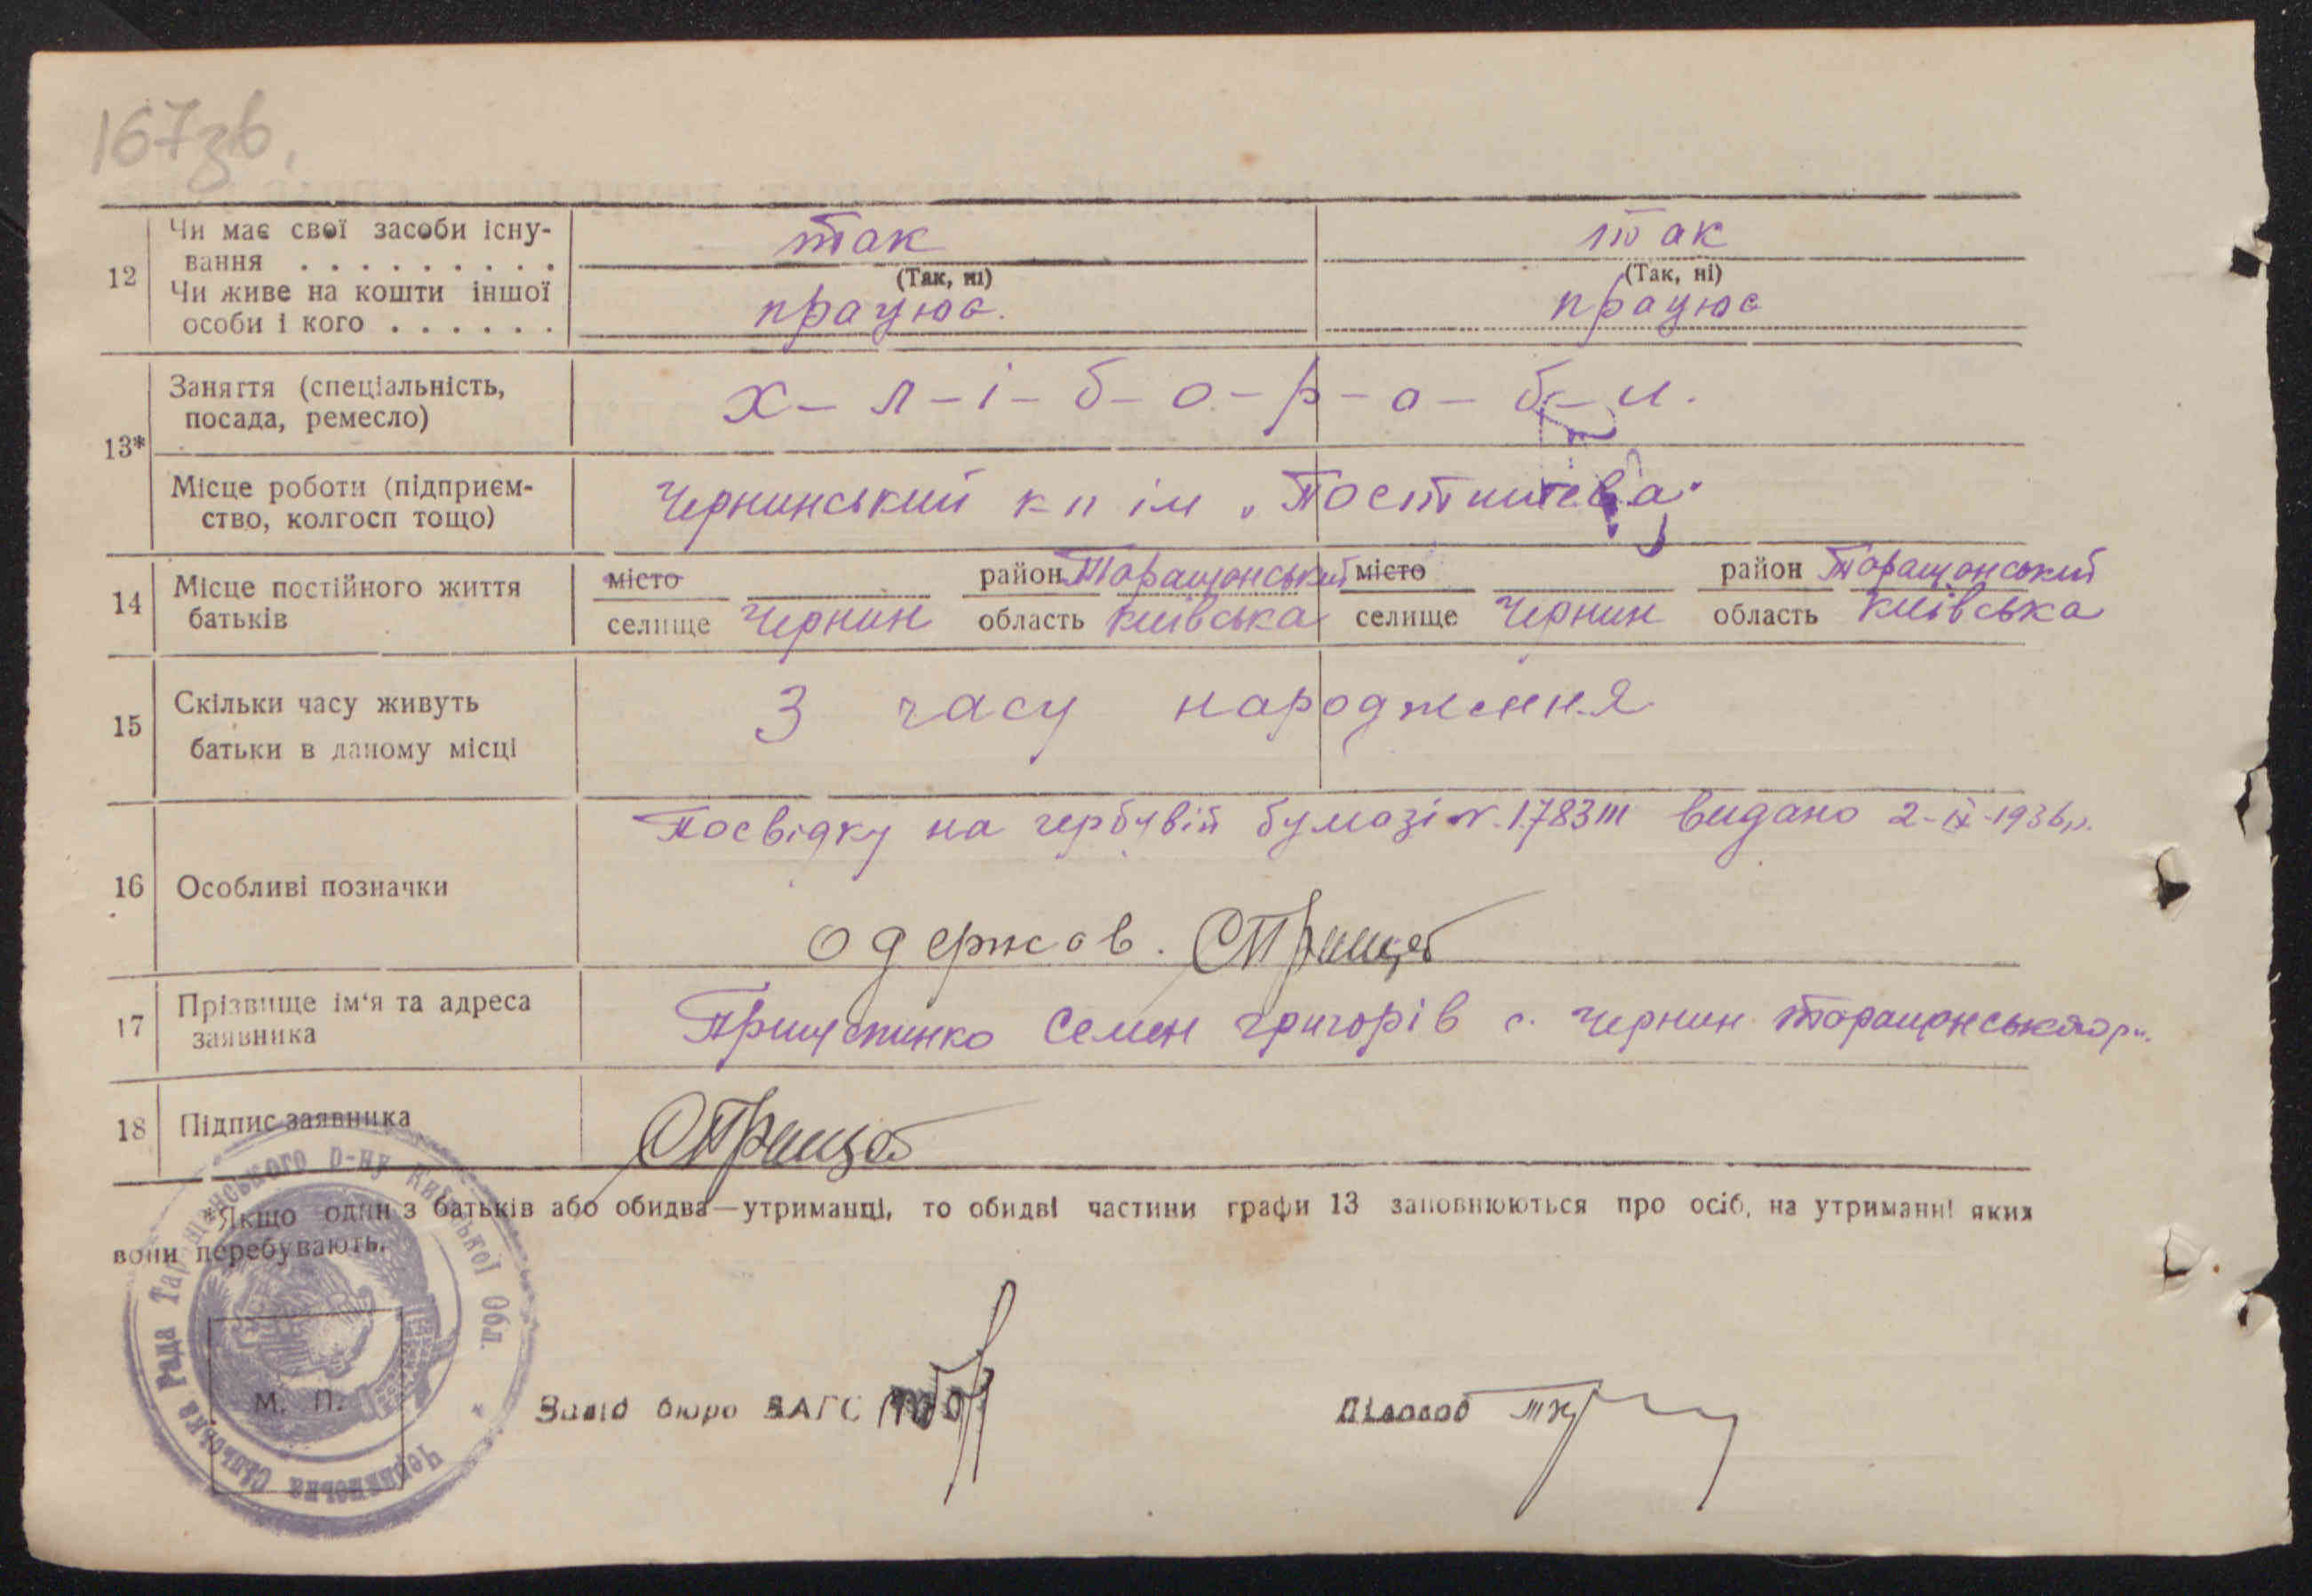 167зв.
12 Чи має свої засоби існу-
вання . . . . . . . . . так так
(Так, ні) (Так, ні)
Чи живе на кошти іншої
особи і кого . . . . . . працює. працює
13* Заняття (спеціальність, х-л-і-б-о-р-о-б-и.
посада, ремесло)
Місце роботи (підприєм- Чернинський к-п ім „Постишева"
ство, колгосп тощо)
14 Місце постійного життя місто район Таращанський місто район Таращанський
батьків селище Чернин область Київська селище Чернин область Київська
15 Скільки часу живуть З часу народження
батьки в даному місці
Посвідку на гербувій бумазі №. 1783111 видано 2-IX-1936р.
16 Особливі позначки
одержав.
17 Прізвище ім'я та адреса Семен Григорів с. Чернин
заявника
18 Підпис заявника
*Якщо один з батьків або обидва—утриманці, то обидві частини графи 13 заповнюються про осіб, на утриманні яких
вони перебувають.
Чернинська Сільська Рада Таращанського р-ну Київської Обл.
М. П.
Завід бюро ЗАГС Діловод